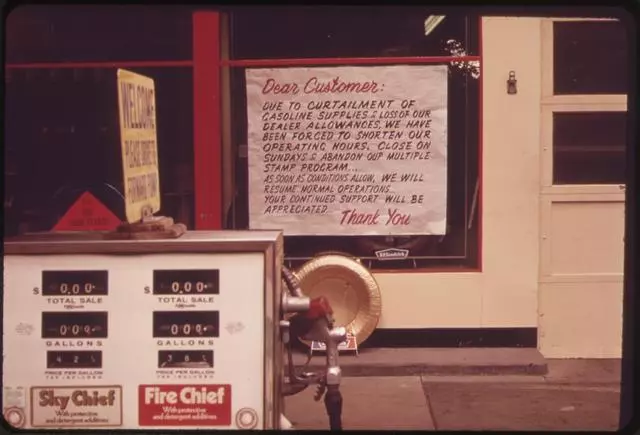 Dear Customer:
DUE TO CURTAILMENT OF
GASOLINE SUPPLIES & LOSS OF OUR
DEALER ALLOWANCES, WE HAVE
BEEN FORCED TO SHORTEN OUR
OPERATING HOURS, CLOSE ON
SUNDAYS & ABANDON OUR MULTIPLE
STAMP PROGRAM...
AS SOON AS CONDITIONS ALLOW, WE WILL
RESUME NORMAL OPERATIONS..
YOUR CONTINUED SUPPORT WILL BE
APPRECIATED
Thank You
WELCOME
PLEASE
FORWARD
BFGoodrich
$ 0.00
TOTAL SALE
00.0
GALLONS
42
PRICE PER GALLON
TAX INCLUDED
Sky Chief
With protective
and detergent additives
$ 0.00
TOTAL SALE
00.0
GALLONS
38
PRICE PER GALLON
TAX INCLUDED
Fire Chief
With protective
and detergent additives